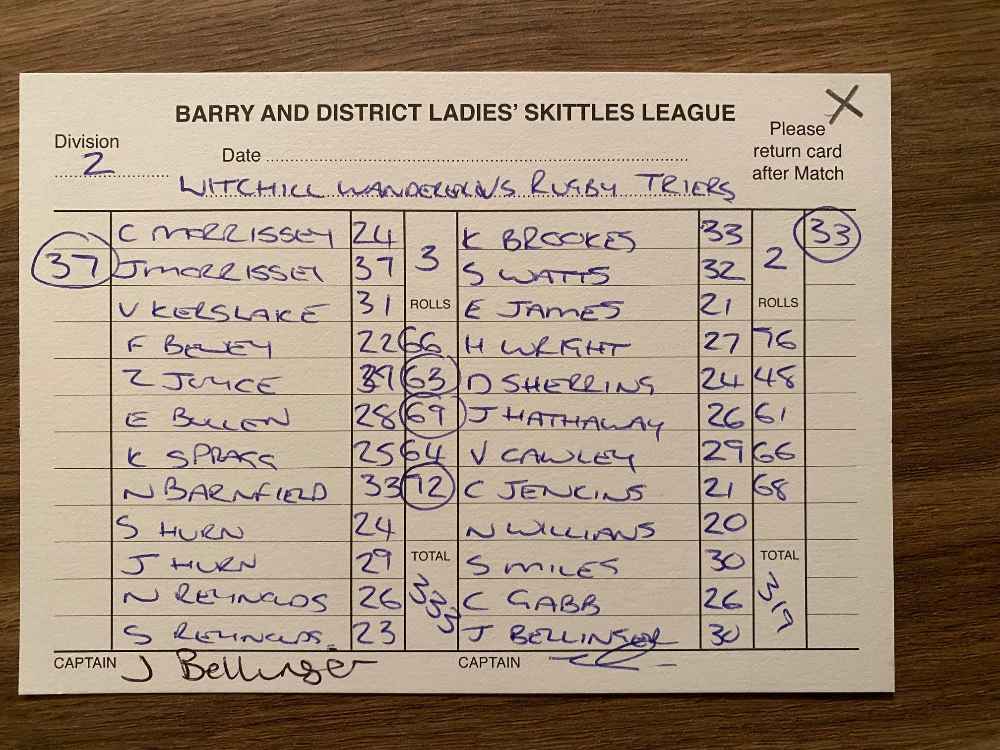 X
BARRY AND DISTRICT LADIES' SKITTLES LEAGUE
Division
2
Date
Please
return card
after Match
WITCHILL WANDERERS RUGBY TRIERS
C MORRISSEY 24 3 K BROOKES 33 2 33
37 J MORRISSEY 37 S WATTS 32
V KERSLAKE 31 ROLLS E JAMES 21 ROLLS
F BEWEY 22 66 H WRIGHT 27 76
Z JOYCE 63 D SHERRING 24 48
E BULLEN 28 69 J HATHAWAY 26 61
K SPRAGG 25 64 V CAWLEY 29 66
N BARNFIELD 33 72 C JENKINS 21 68
S HURN 24 N WILLIANS 20
J HURN 29 TOTAL S MILES 30 TOTAL
N REYNOLDS 26 333 C GABB 26 319
S REYNOLDS. 23 J BELLINGER 30
CAPTAIN J Bellinger CAPTAIN